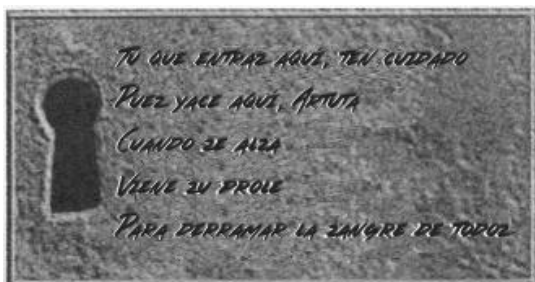 Tu que entraz aquí, ten cuidado
Puez yace aquí, Artuta
Cuando ze alza
Viene zu prole
Para derramar la zangre de todoz